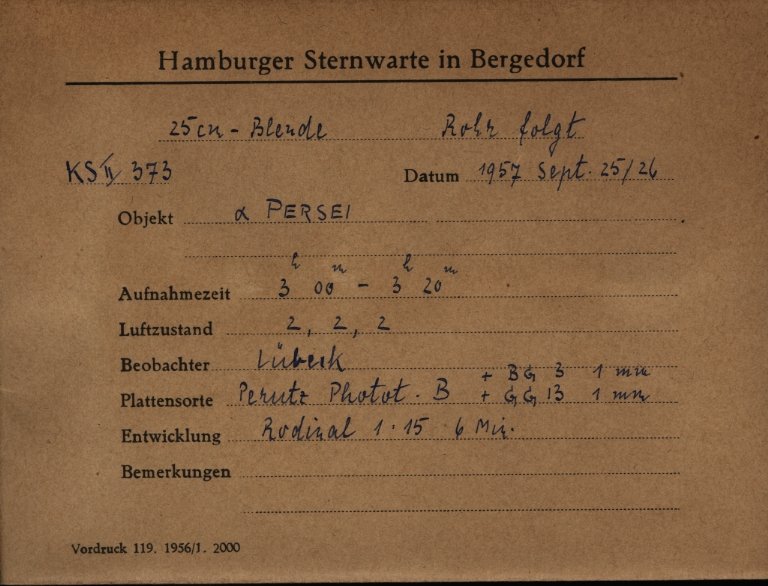 Hamburger Sternwarte in Bergedorf
25cm - Blende Rohr folgt
KS II 373 Datum 1957 Sept. 25/26
Objekt α PERSEI
Aufnahmezeit 3h 00m - 3h 20m
Luftzustand 2, 2, 2
Beobachter Lübeck
+ BG 3 1 mm
Plattensorte Perutz Photot. B + GG 13 1 mm
Entwicklung Rodinal 1:15 6 Min.
Bemerkungen
Vordruck 119. 1956/1. 2000